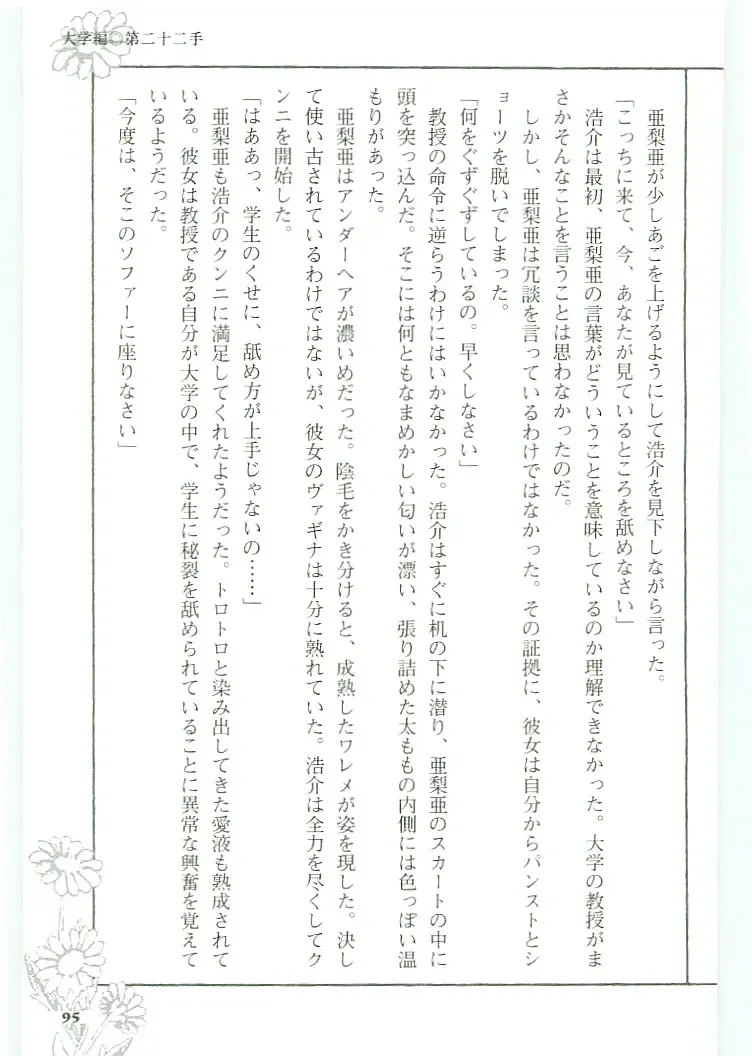 大学編◎第二十二手
　亜梨亜が少しあごを上げるようにして浩介を見下しながら言った。
「こっちに来て、今、あなたが見ているところを舐めなさい」
　浩介は最初、亜梨亜の言葉がどういうことを意味しているのか理解できなかった。大学の教授がま
さかそんなことを言うことは思わなかったのだ。
　しかし、亜梨亜は冗談を言っているわけではなかった。その証拠に、彼女は自分からパンストとシ
ョーツを脱いでしまった。
「何をぐずぐずしているの。早くしなさい」
　教授の命令に逆らうわけにはいかなかった。浩介はすぐに机の下に潜り、亜梨亜のスカートの中に
頭を突っ込んだ。そこには何ともなまめかしい匂いが漂い、張り詰めた太ももの内側には色っぽい温
もりがあった。
　亜梨亜はアンダーヘアが濃いめだった。陰毛をかき分けると、成熟したワレメが姿を現した。決し
て使い古されているわけではないが、彼女のヴァギナは十分に熟れていた。浩介は全力を尽くしてク
ンニを開始した。
「はああっ、学生のくせに、舐め方が上手じゃないの……」
　亜梨亜も浩介のクンニに満足してくれたようだった。トロトロと染み出してきた愛液も熟成されて
いる。彼女は教授である自分が大学の中で、学生に秘裂を舐められていることに異常な興奮を覚えて
いるようだった。
「今度は、そこのソファーに座りなさい」
95